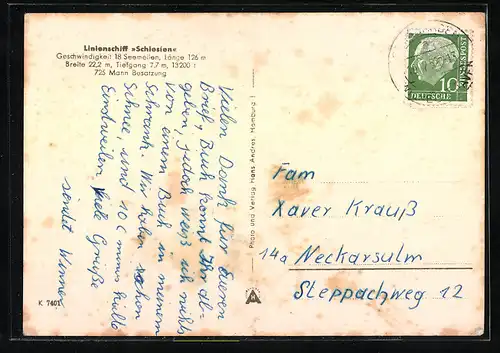 Linienschiff »Schlesien«
Geschwindigkeit 18 Seemeilen, Länge 126 m
Breite 22,2 m, Tiefgang 7,7 m, 13200 t
725 Mann Besatzung
Vielen Dank für Eueren
Brief, Buch könnt Ihr ab-
geben, jedoch weiß ich nichts
von einem Buch in meinem
Schrank. Wir haben schon
Schnee und 10 C minus Kälte
Einstweilen viele Grüße
sendet Winne
K 7401
Photo und Verlag Hans Andres, Hamburg 1
DEUTSCHE
BUNDESPOST
10
Fam
Xaver Krauß
14a Neckarsulm
Steppachweg 12